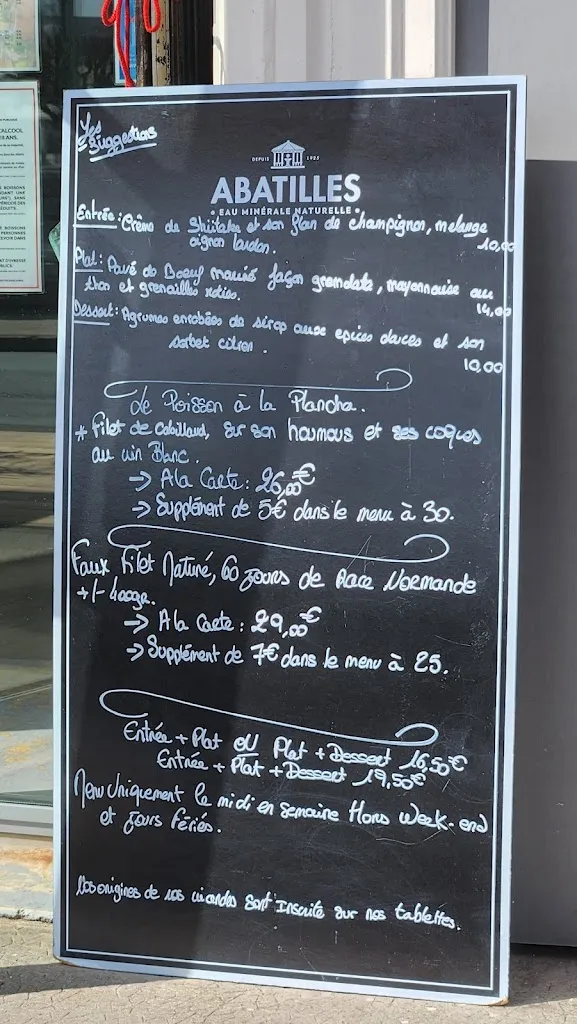 Les
Suggestions
DEPUIS 1925
ABATILLES
• EAU MINÉRALE NATURELLE •
Entrée: Crème de Shiitake et son flan de champignon, mélange
oignon lardon. 10,00
Plat: Pavé de Boeuf mariné façon gremolata, mayonnaise au
thon et grenailles roties. 14,00
Dessert: Agrumes enrobées de sirop aux epices douces et son
sorbet citron. 10,00
Le Poisson à la Plancha.
* Filet de Cabillaud, sur son houmous et ses coques
au vin Blanc.
→ A la Carte: 26,00€
→ Supplément de 5€ dans le menu à 30.
Faux Filet Maturé, 60 jours de Race Normande
+/- 400gr.
→ A la Carte: 29,00€
→ Supplément de 7€ dans le menu à 25.
Entrée + Plat OU Plat + Dessert 16,50€
Entrée + Plat + Dessert 19,50€
Menu Uniquement le midi en semaine Hors Week-end
et jours fériés.
Nos origines de nos viandes sont inscrite sur nos tablettes.